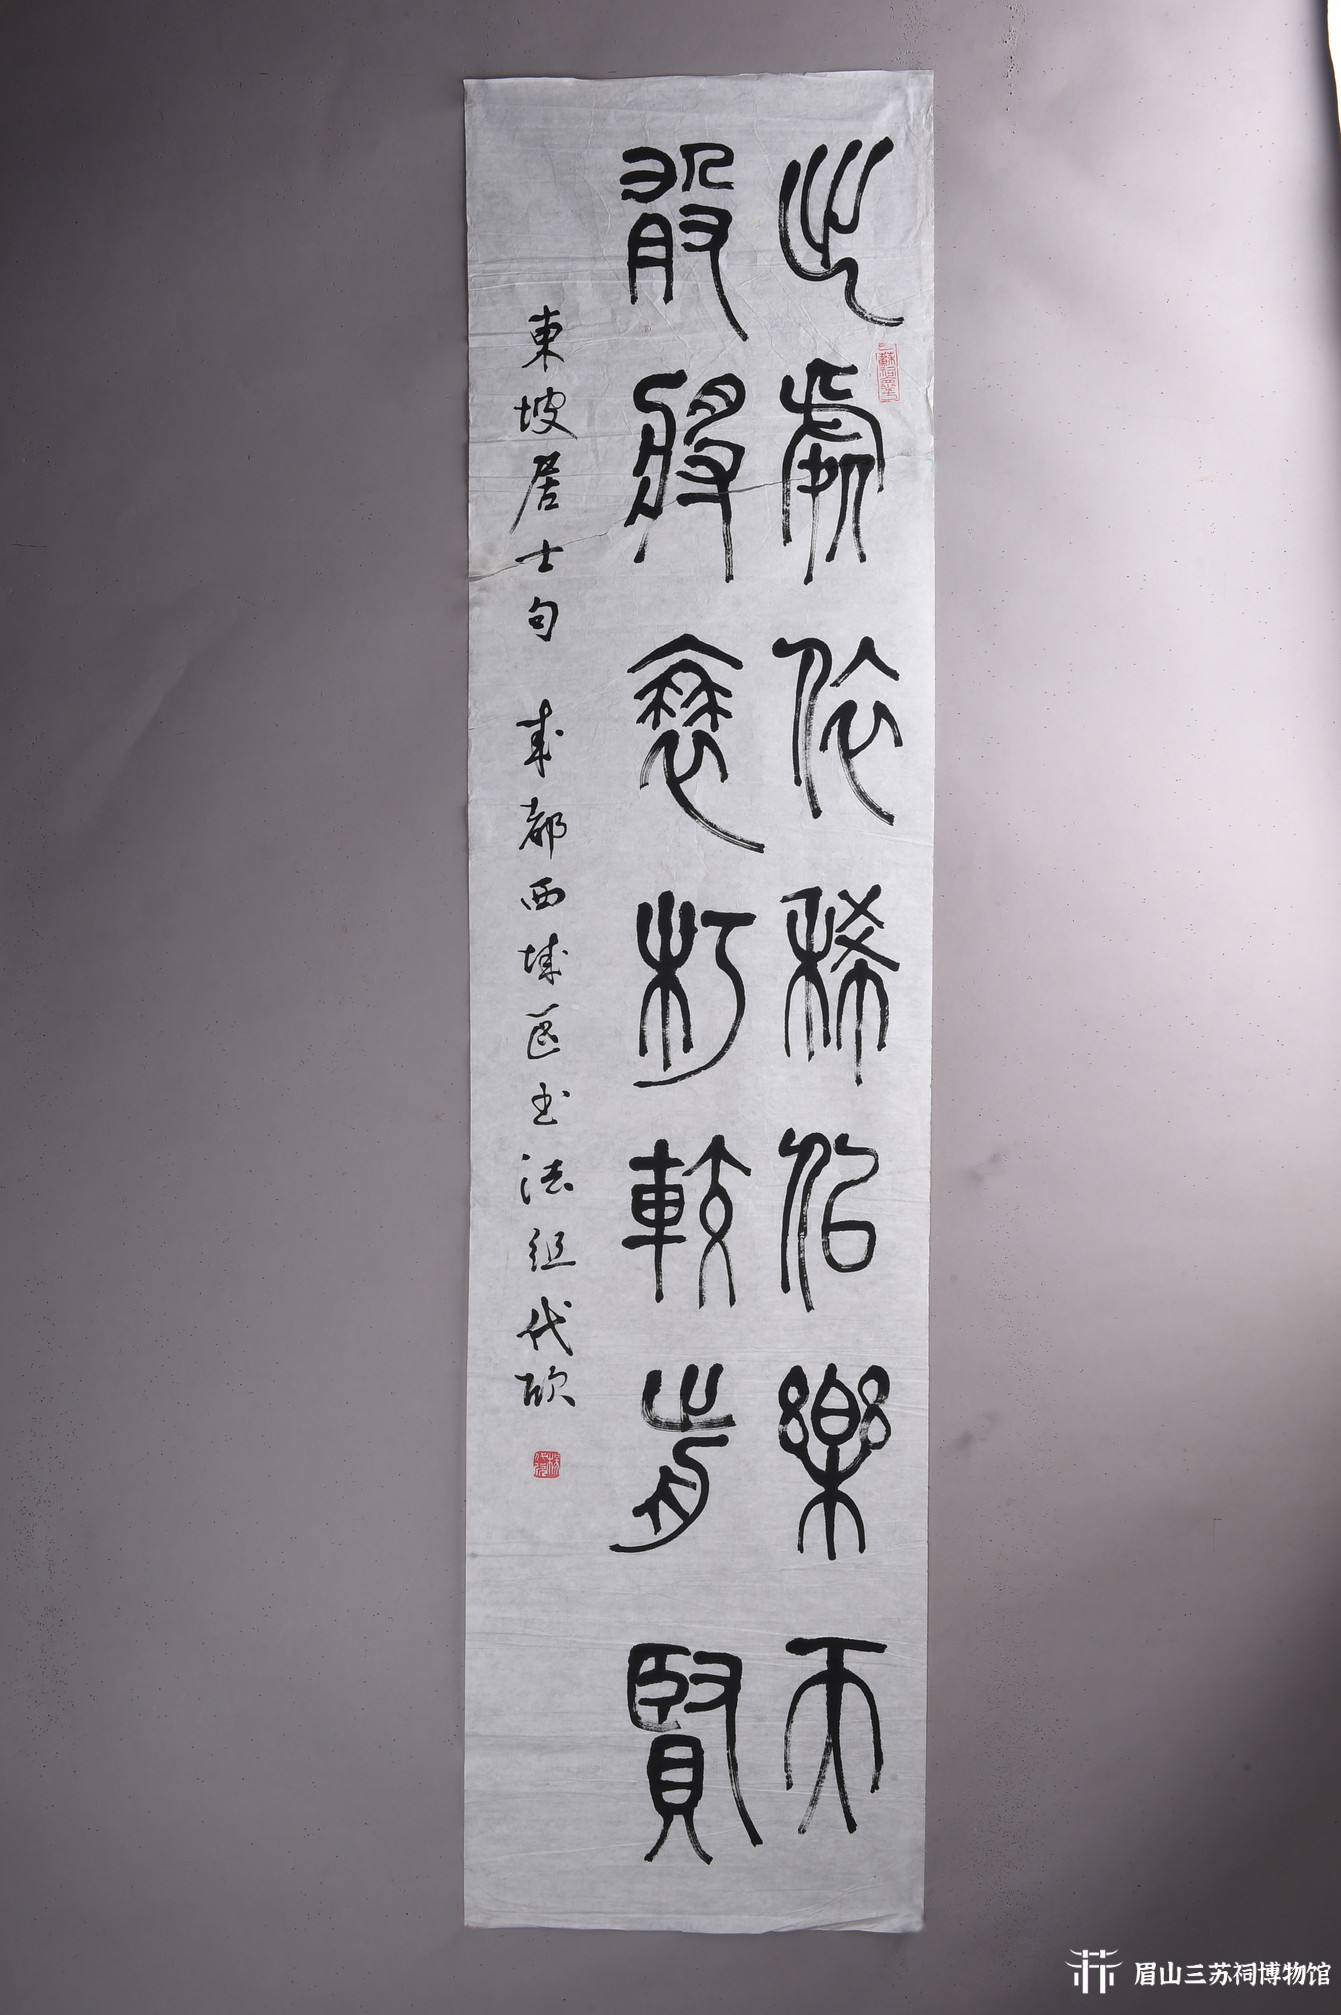 出處依稀似樂天
敢將衰朽較前賢
東坡居士句 成都西城區书法组代欣
眉山三苏祠博物馆